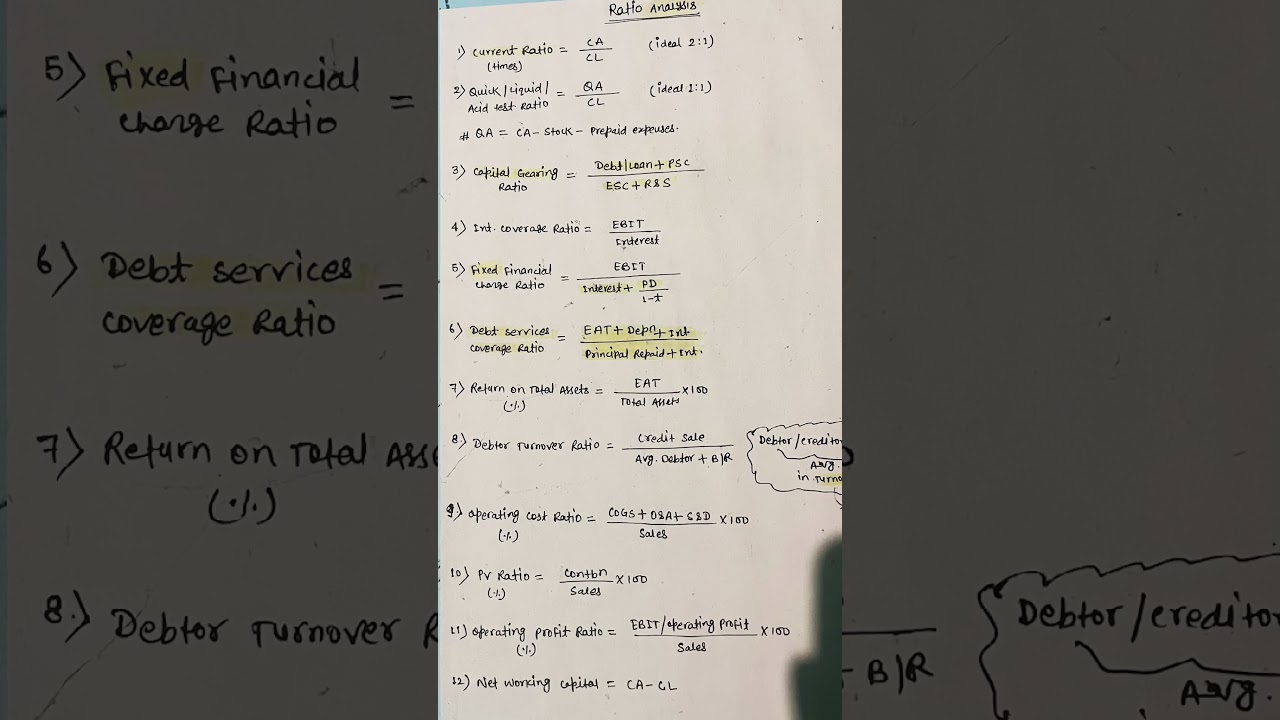 Ratio Analysis
1) Current Ratio = CA / CL (ideal 2:1)
(times)
2) Quick/Liquid/ Acid test Ratio = QA / CL (ideal 1:1)
# QA = CA - Stock - Prepaid expenses.
3) Capital Gearing Ratio = Debt/Loan + PSC / ESC + R&S
4) Int. coverage Ratio = EBIT / Interest
5) Fixed Financial charge Ratio = EBIT / Interest + PD / 1-t
6) Debt services coverage Ratio = EAT + Depn + Int. / Principal Repaid + Int.
7) Return on Total Assets = EAT / Total Assets × 100
(%)
8) Debtor Turnover Ratio = Credit Sale / Avg. Debtor + B/R
Debtor/creditor
Avg.
in Turno
9) Operating cost Ratio = COGS + O&A + S&D / Sales × 100
(%)
10) PV Ratio = Contbn / Sales × 100
(%)
11) Operating Profit Ratio = EBIT/Operating Profit / Sales × 100
(%)
12) Net Working Capital = CA - CL
5) Fixed Financial
charge Ratio =
6) Debt services
coverage Ratio =
7) Return on Total Ass
(%)
8.) Debtor Turnover R
+ B/R
Debtor/creditor
Avg.